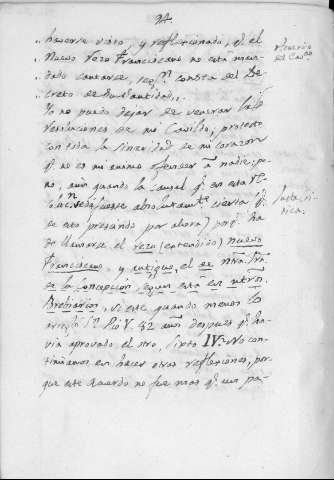 94.
haverse visto, y reflexionado, q.e el
Nuevo Rezo Franciscano no está man-
dado cantarse, seg.n consta del De-
creto de Su Santidad.,
Yo no puedo dejar de venerar las
resoluciones de mi Cavildo, protesto
con toda la sinceridad de mi corazon
q.e no es mi animo ofender a nadie; pe-
no; aun quando la causal q.e en esta
fuesse absolutam.te cierta q.e
de esto prescindo por ahora) porq.e ha
de llamarse el rezo (entendido) nuevo
Franciscano, y antiguo, el de Ntra. Sra.
de la Concepcion, segun està en ntros.
Breviarios, si este quando menos lo
arregló S.n Pio V. 92 años despues q.e ha-
via aprovado el otro, Sixto IV. No con-
tinuamos en hacer otras reflexiones, por-
que este Acuerdo no fue mas q.e un pa-